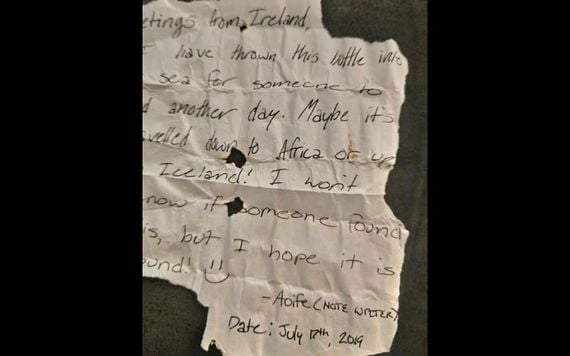 etings from Ireland,
I have thrown this bottle into
sea for someone to
d another day. Maybe it's
avelled down to Africa or up
Iceland! I won't
now if someone found
is, but I hope it is
ound! :)
-Aoife (NOTE WRITER)
Date: July 17th, 2019